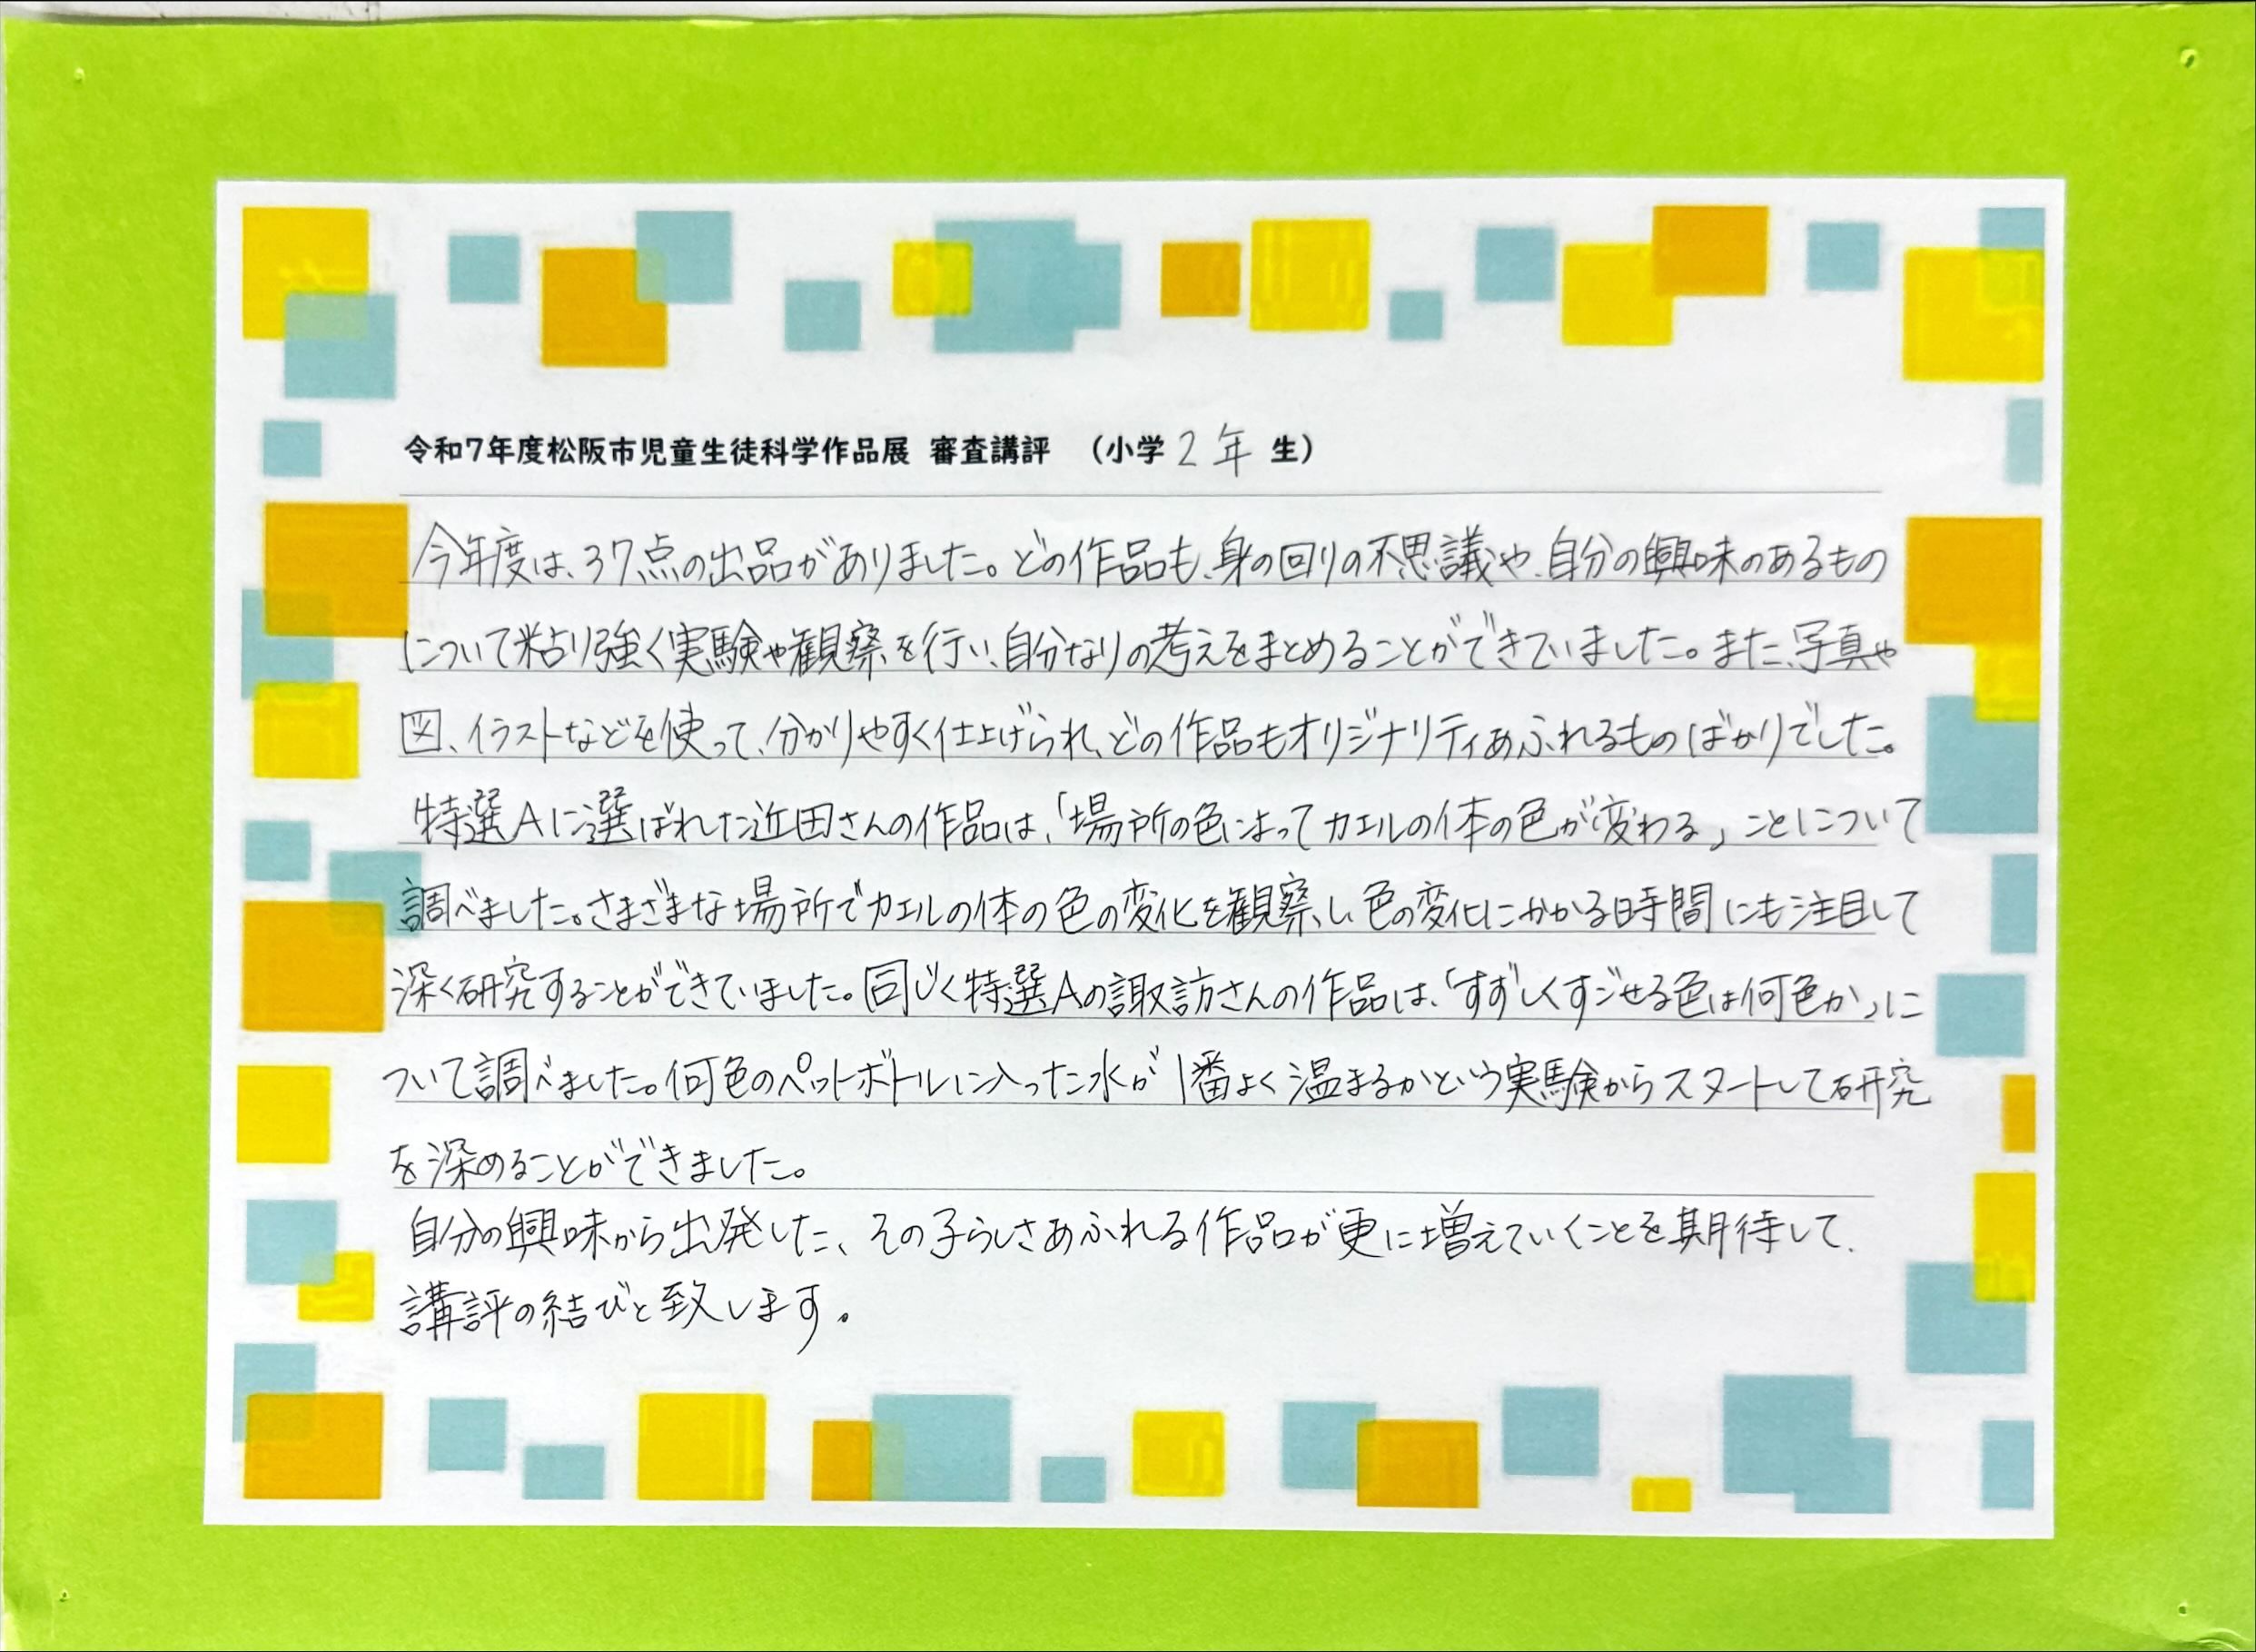 令和7年度松阪市児童生徒科学作品展 審査講評 （小学2年生）
今年度は、37点の出品がありました。どの作品も、身の回りの不思議や、自分の興味のあるもの
について粘り強く実験や観察を行い、自分なりの考えをまとめることができていました。また、写真や
図、イラストなどを使って、分かりやすく仕上げられ、どの作品もオリジナリティあふれるものばかりでした。
特選Aに選ばれた近田さんの作品は、「場所の色によってカエルの体の色が変わる」ことについて
調べました。さまざまな場所でカエルの体の色の変化を観察し、色の変化にかかる時間にも注目して
深く研究することができていました。同じく特選Aの諏訪さんの作品は、「すずしくすごせる色は何色か」に
ついて調べました。何色のペットボトルに入った水が1番よく温まるかという実験からスタートして研究
を深めることができました。
自分の興味から出発した、その子らしさあふれる作品が更に増えていくことを期待して、
講評の結びと致します。